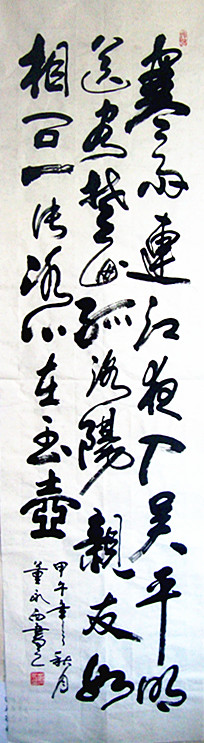 寒雨連江夜入吳平明
送客楚山孤洛陽親友如
相問一片冰心在玉壺
甲午年之秋月
董西書